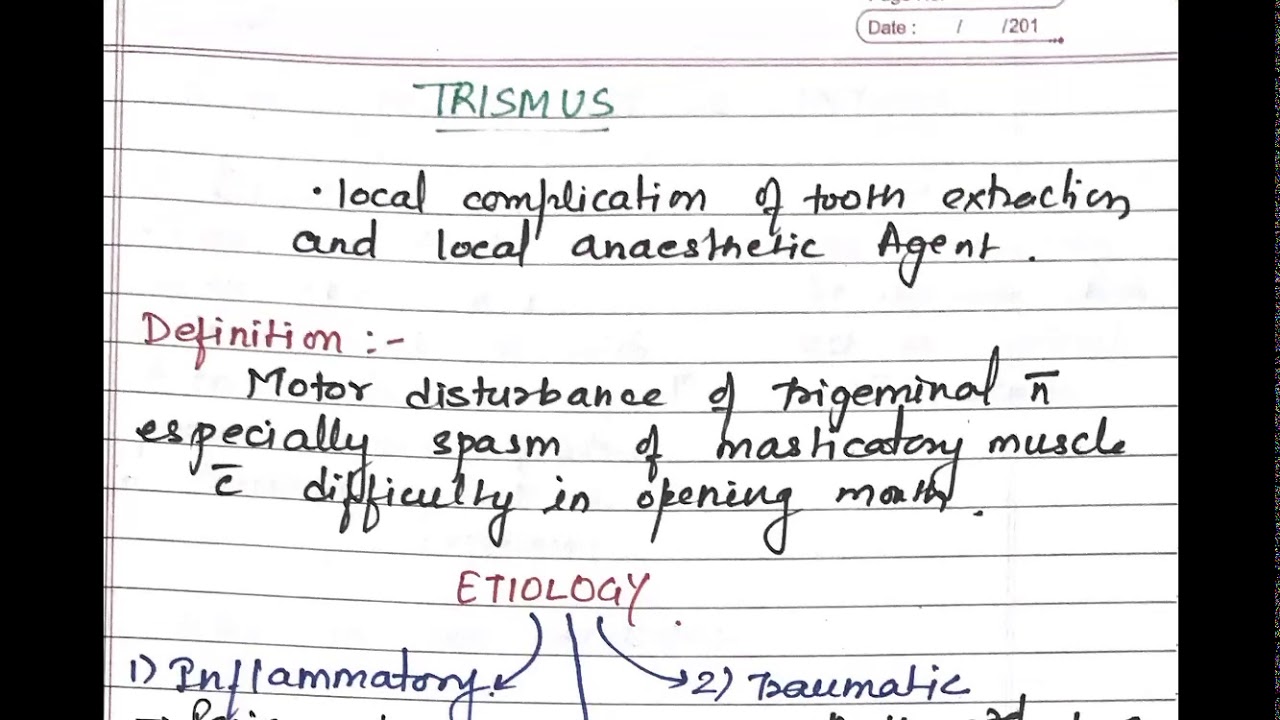 Date : / /201
TRISMUS
• local complication of tooth extraction
and local anaesthetic Agent .
Definition :-
Motor disturbance of trigeminal n̄
especially spasm of masticatory muscle
c̄ difficulty in opening mouth .
ETIOLOGY .
1) Inflammatory. 2) Traumatic